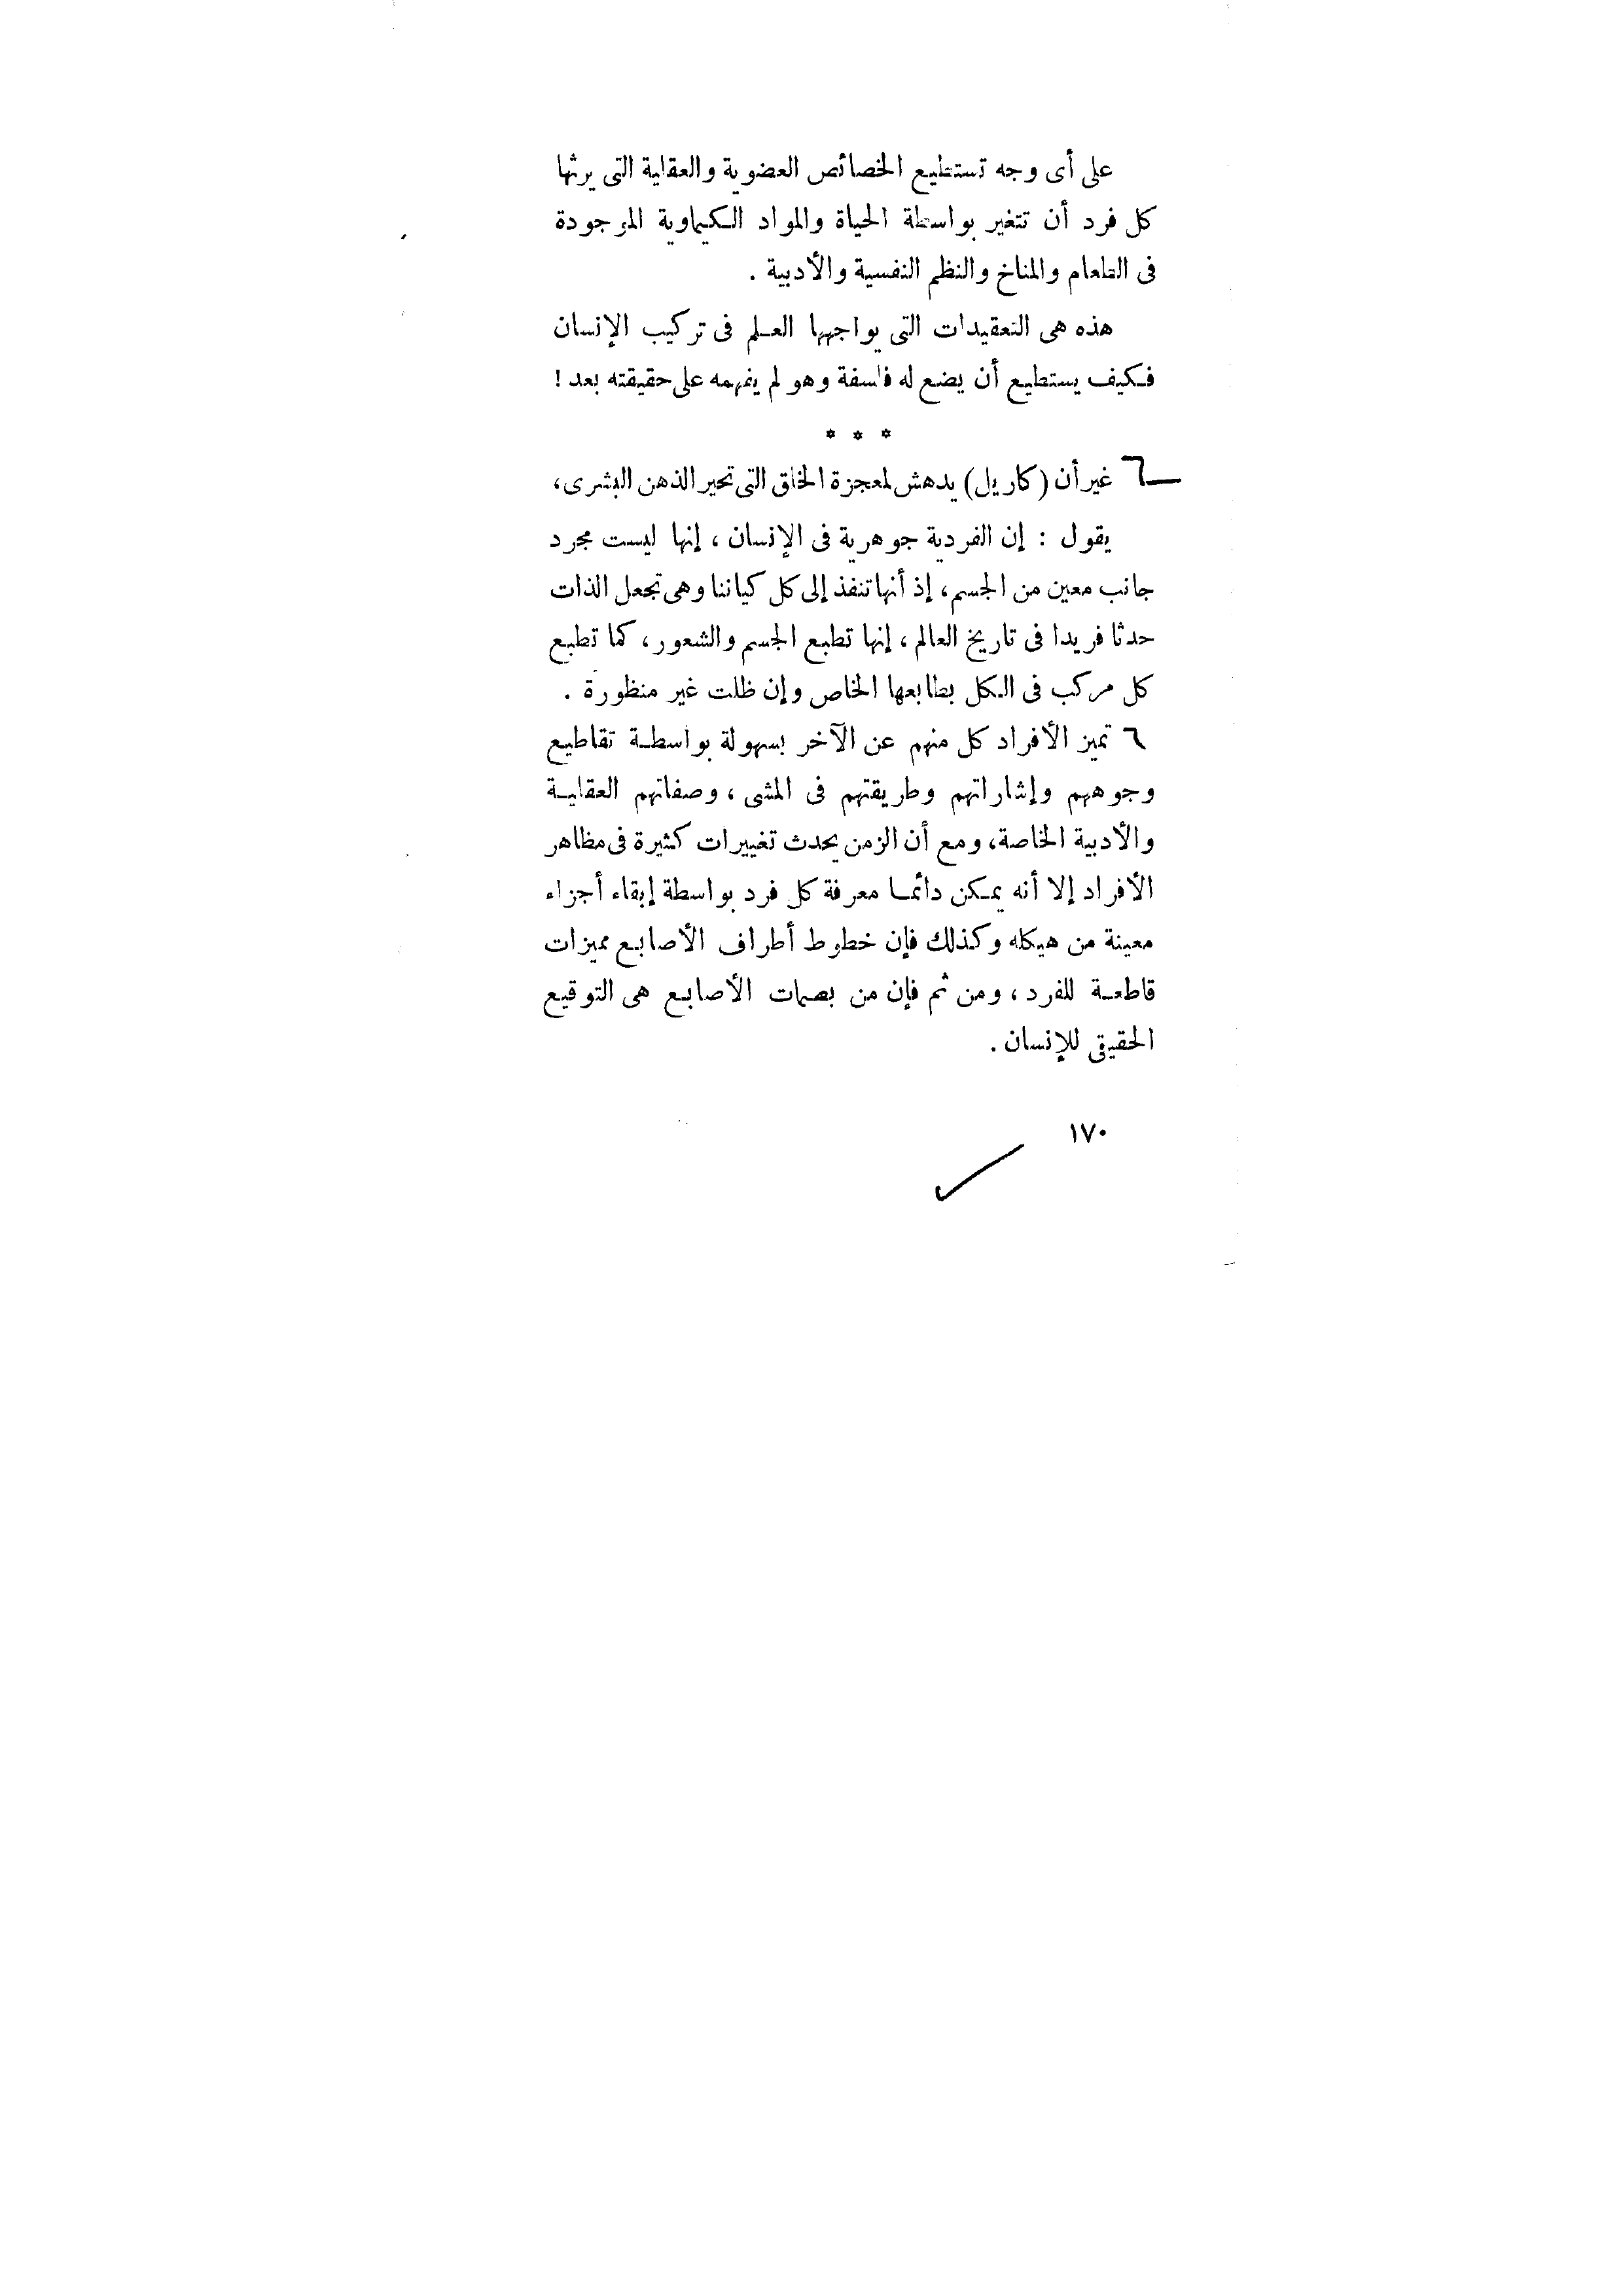 على أى وجه تستطيع الخصائص العضوية والعقلية التى يرثها
كل فرد أن تتغير بواسطة الحياة والمواد الكيماوية الموجودة
فى الطعام والمناخ والنظم النفسية والأدبية .
هذه هى التعقيدات التى يواجهها العلم فى تركيب الإنسان
فكيف يستطيع أن يضع له فلسفة وهو لم يفهمه على حقيقته بعد !
* * *
غير أن (كاريل) يدهش لمعجزة الخلق التى تحير الذهن البشرى،
يقول : إن الفردية جوهرية فى الإنسان ، إنها ليست مجرد
جانب معين من الجسم، إذ أنها تنفذ إلى كل كياننا وهى تجعل الذات
حدثا فريدا فى تاريخ العالم ، إنها تطبع الجسم والشعور، كما تطبع
كل مركب فى الكل بطابعها الخاص وإن ظلت غير منظورة .
تميز الأفراد كل منهم عن الآخر بسهولة بواسطة تقاطيع
وجوههم وإشاراتهم وطريقتهم فى المشى ، وصفاتهم العقلية
والأدبية الخاصة، ومع أن الزمن يحدث تغييرات كثيرة فى مظاهر
الأفراد إلا أنه يمكن دائما معرفة كل فرد بواسطة إبقاء أجزاء
معينة من هيكله وكذلك فإن خطوط أطراف الأصابع مميزات
قاطعة للفرد ، ومن ثم فإن من بصمات الأصابع هى التوقيع
الحقيقى للإنسان .
١٧٠